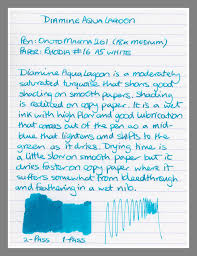 Diamine Aqua Lagoon
Pen: Onoto Magna 261 (Pen medium)
Paper: Rhodia #16 A5 white
Diamine Aqua Lagoon is a moderately
saturated turquoise that shows good
shading on smooth papers. Shading
is reduced on copy paper. It is a wet
ink with high flow and good lubrication
that comes out of the pen as a mid-
blue that lightens and shifts to the
green as it dries. Drying time is
a little slow on smooth paper but it
dries faster on copy paper where it
suffers somewhat from bleedthrough
and feathering in a wet nib.
2-Pass 1-Pass